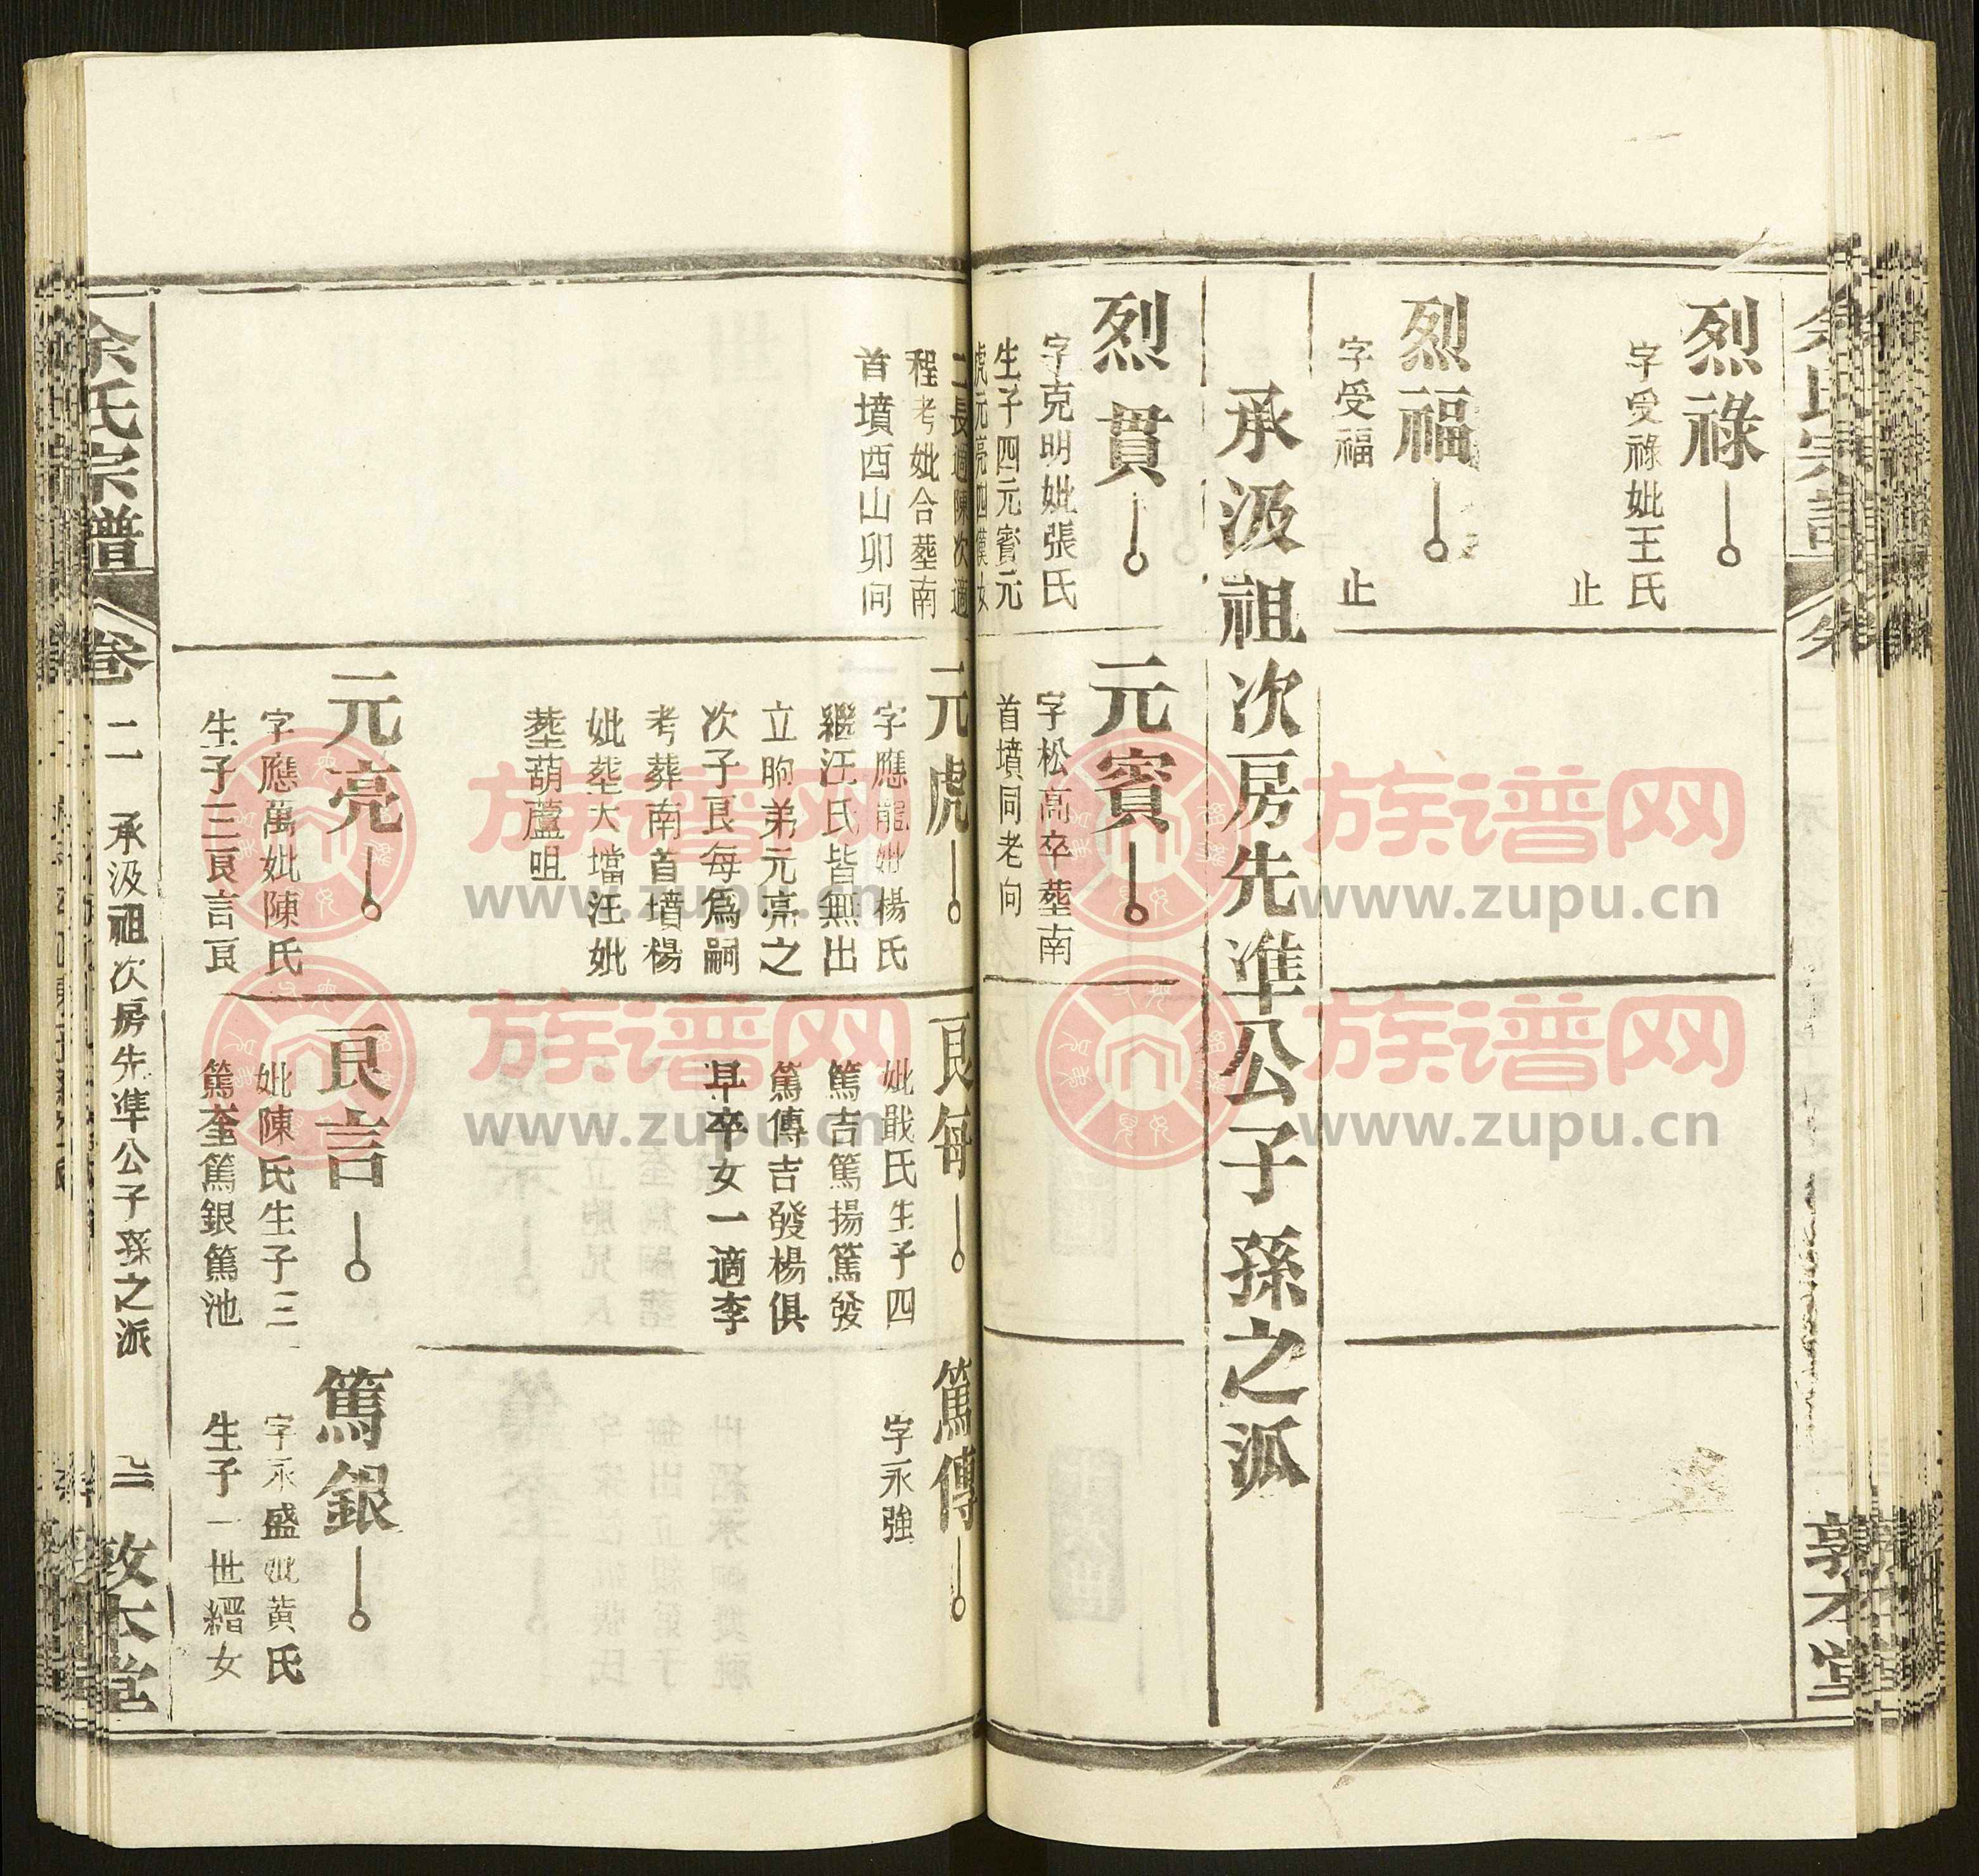 烈祿
字受祿妣王氏
止
烈福
字受福
止
承汲祖次房先準公子孫之派
烈貫
字克明妣張氏
生子四元賓元
虎元亮四漢女
二長適陳次適
程考妣合塟南
首墳酉山卯向
元賓
字松高卒塟南
首墳同老向
元虎
字應龍妣楊氏
繼汪氏皆無出
立昫弟元亮之
次子良每爲嗣
考葬南首墳楊
妣塟大壋汪妣
塟葫蘆咀
元亮
字應萬妣陳氏
生子三良言良
良每
妣戢氏生子四
篤吉篤揚篤發
篤傳吉發楊俱
早卒女一適李
良言
妣陳氏生子三
篤奎篤銀篤池
篤傳
字永強
篤銀
字永盛妣黃氏
生子一世縉女
余氏宗譜
卷二
承汲祖次房先準公子孫之派
三
敦本堂
族谱网
www.zupu.cn
族谱网
www.zupu.cn
族谱网
www.zupu.cn
族谱网
www.zupu.cn